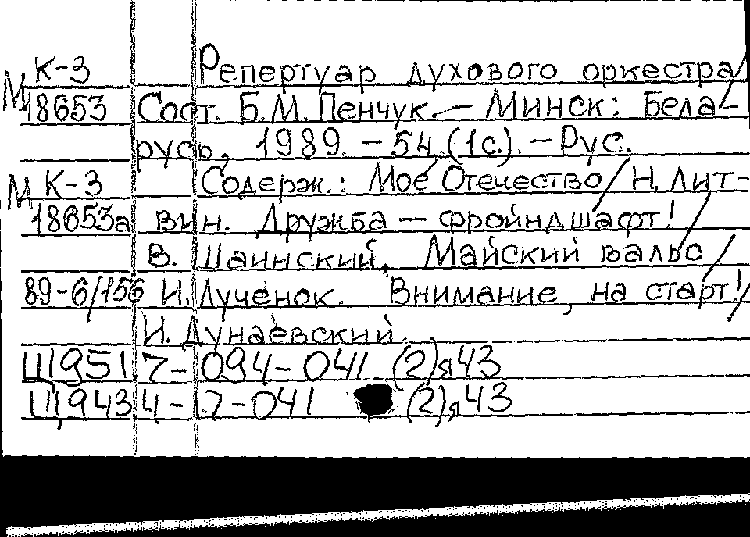 К-3 Репертуар духового оркестра/
М 18653 Сост. Б.М. Пенчук. — Минск: Бела-
русь, 1989. – 54 (1с.). – Рус.
М К-3 Содерж.: Мое Отечество/Н. Лит-
18653а вин. Дружба — фройндшафт!/
В. Шаинский. Майский вальс/
89-6/156 И. Лученок. Внимание, на старт!/
И. Дунаевский.
Щ9517-094-041 (2)я43
Щ9434-7-041 (2)я43